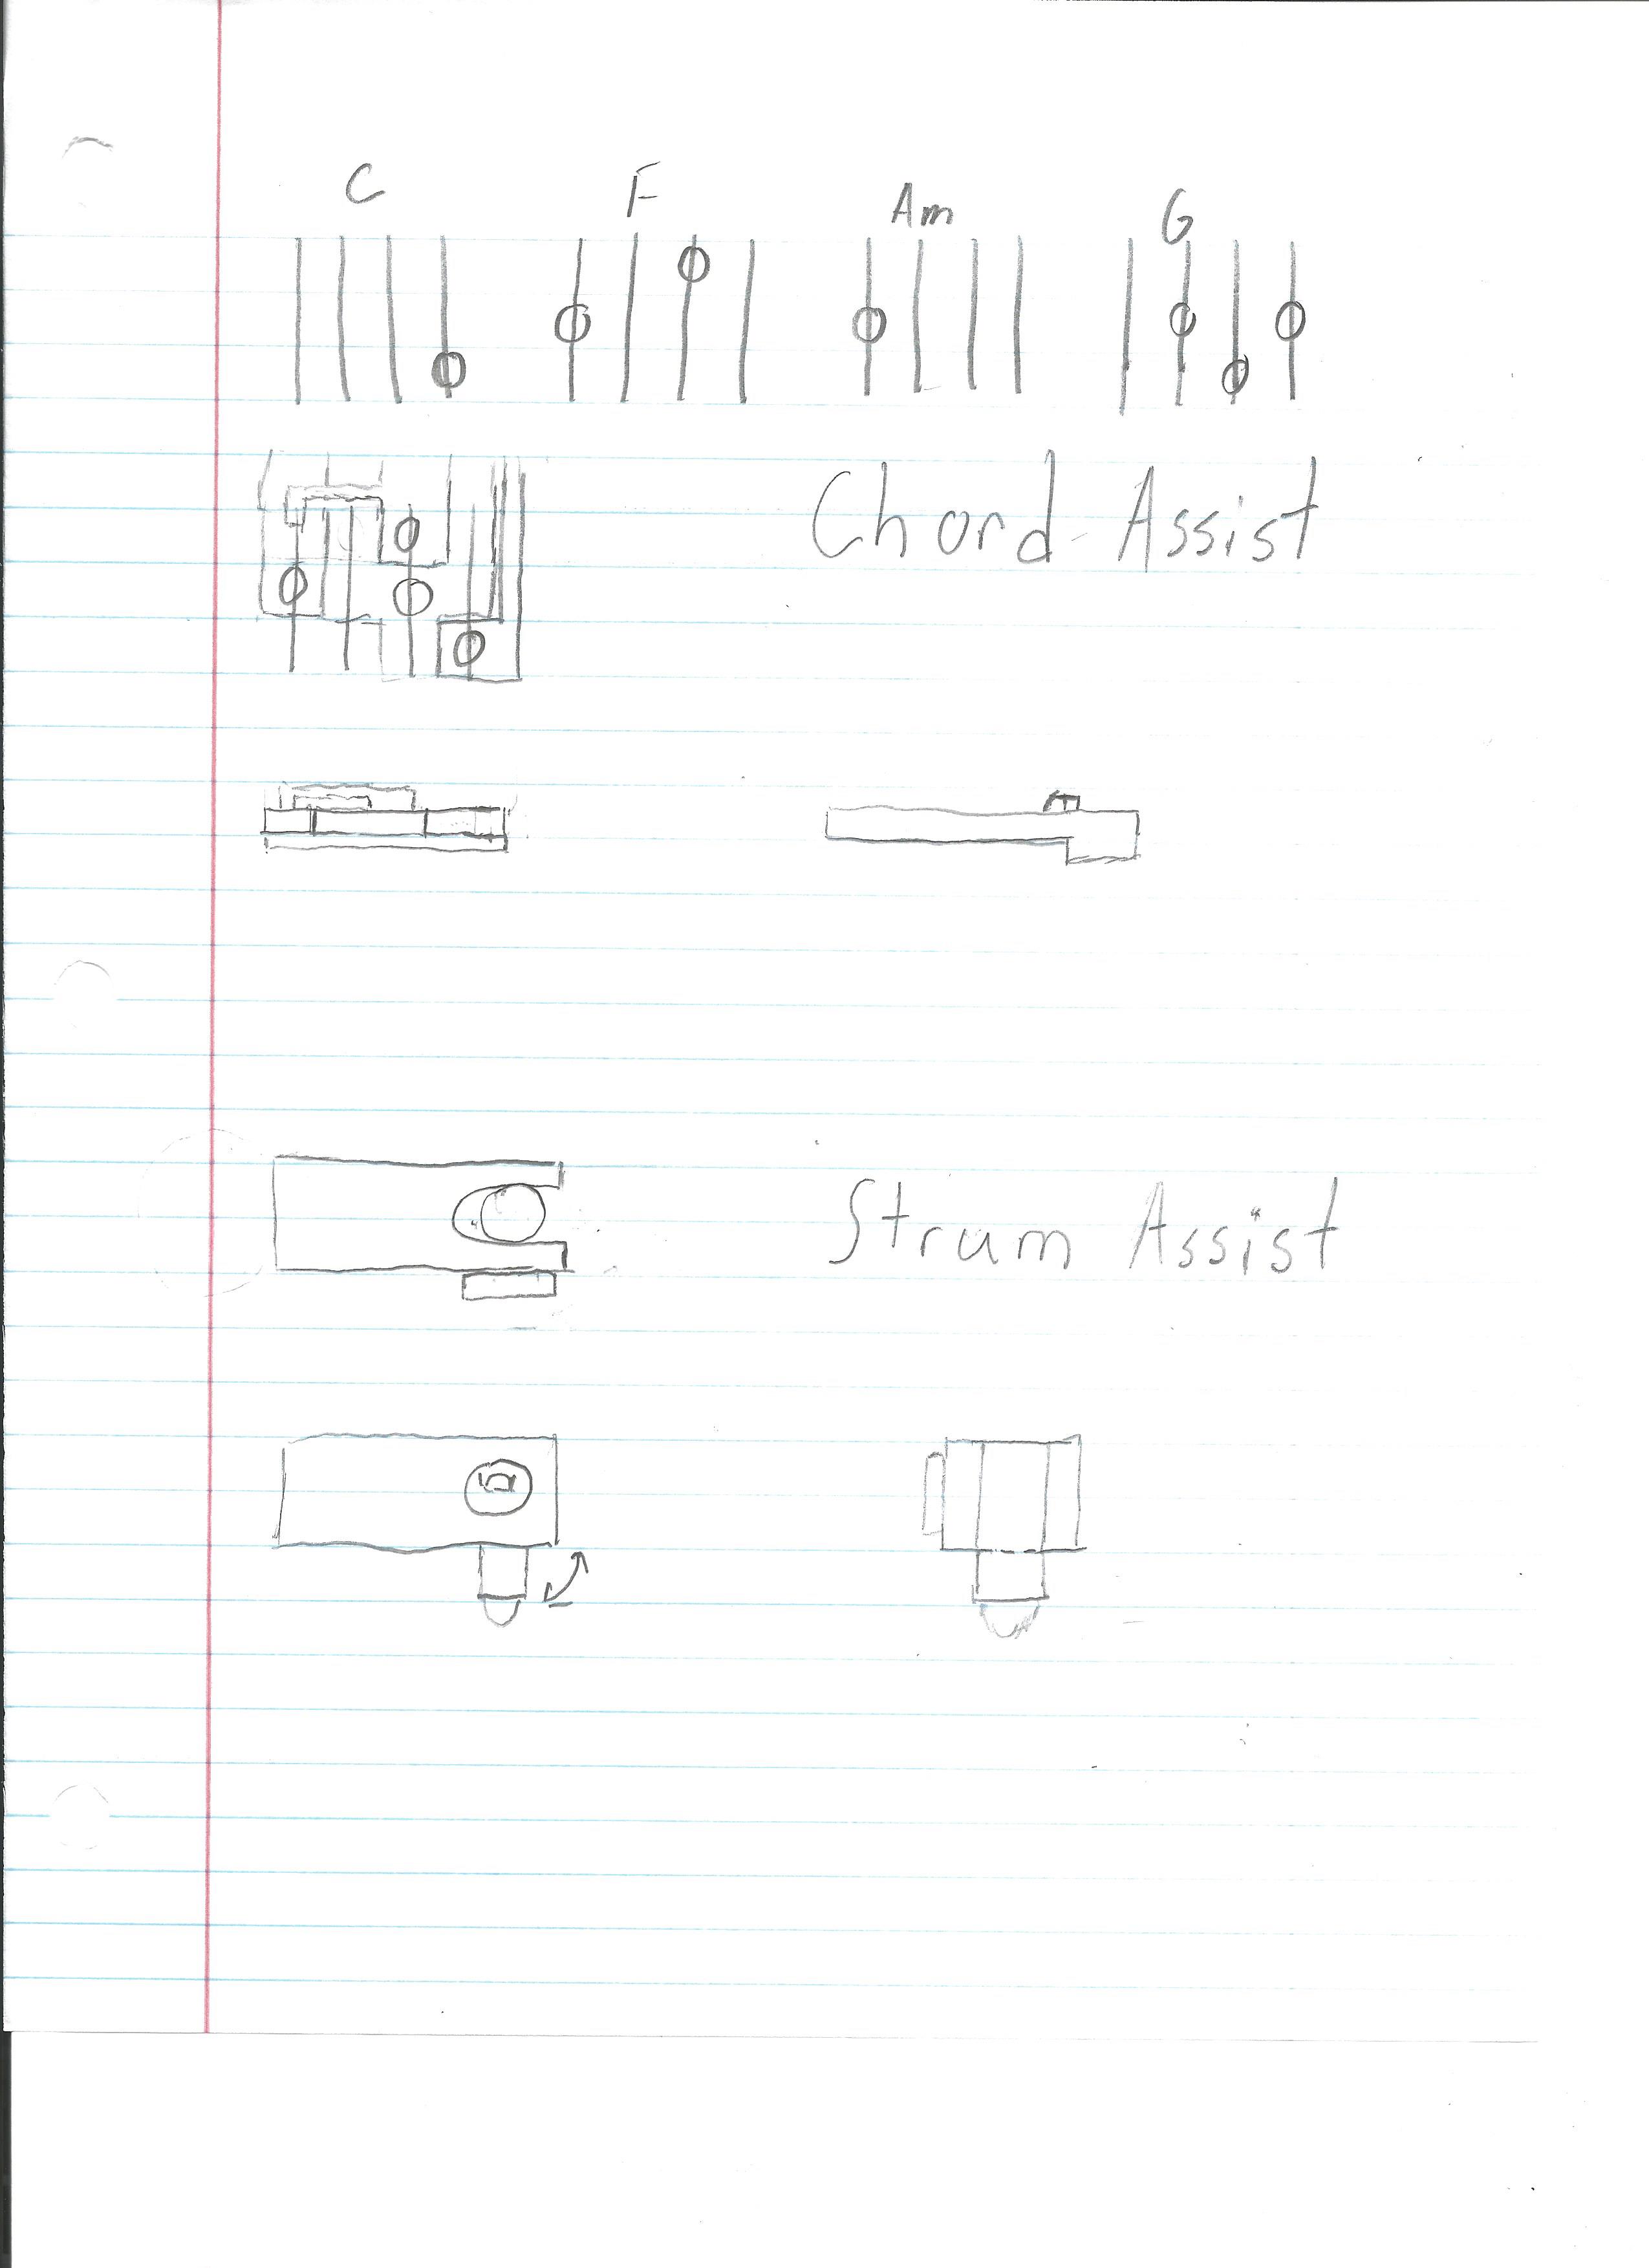 C F Am G
Chord Assist
Strum Assist